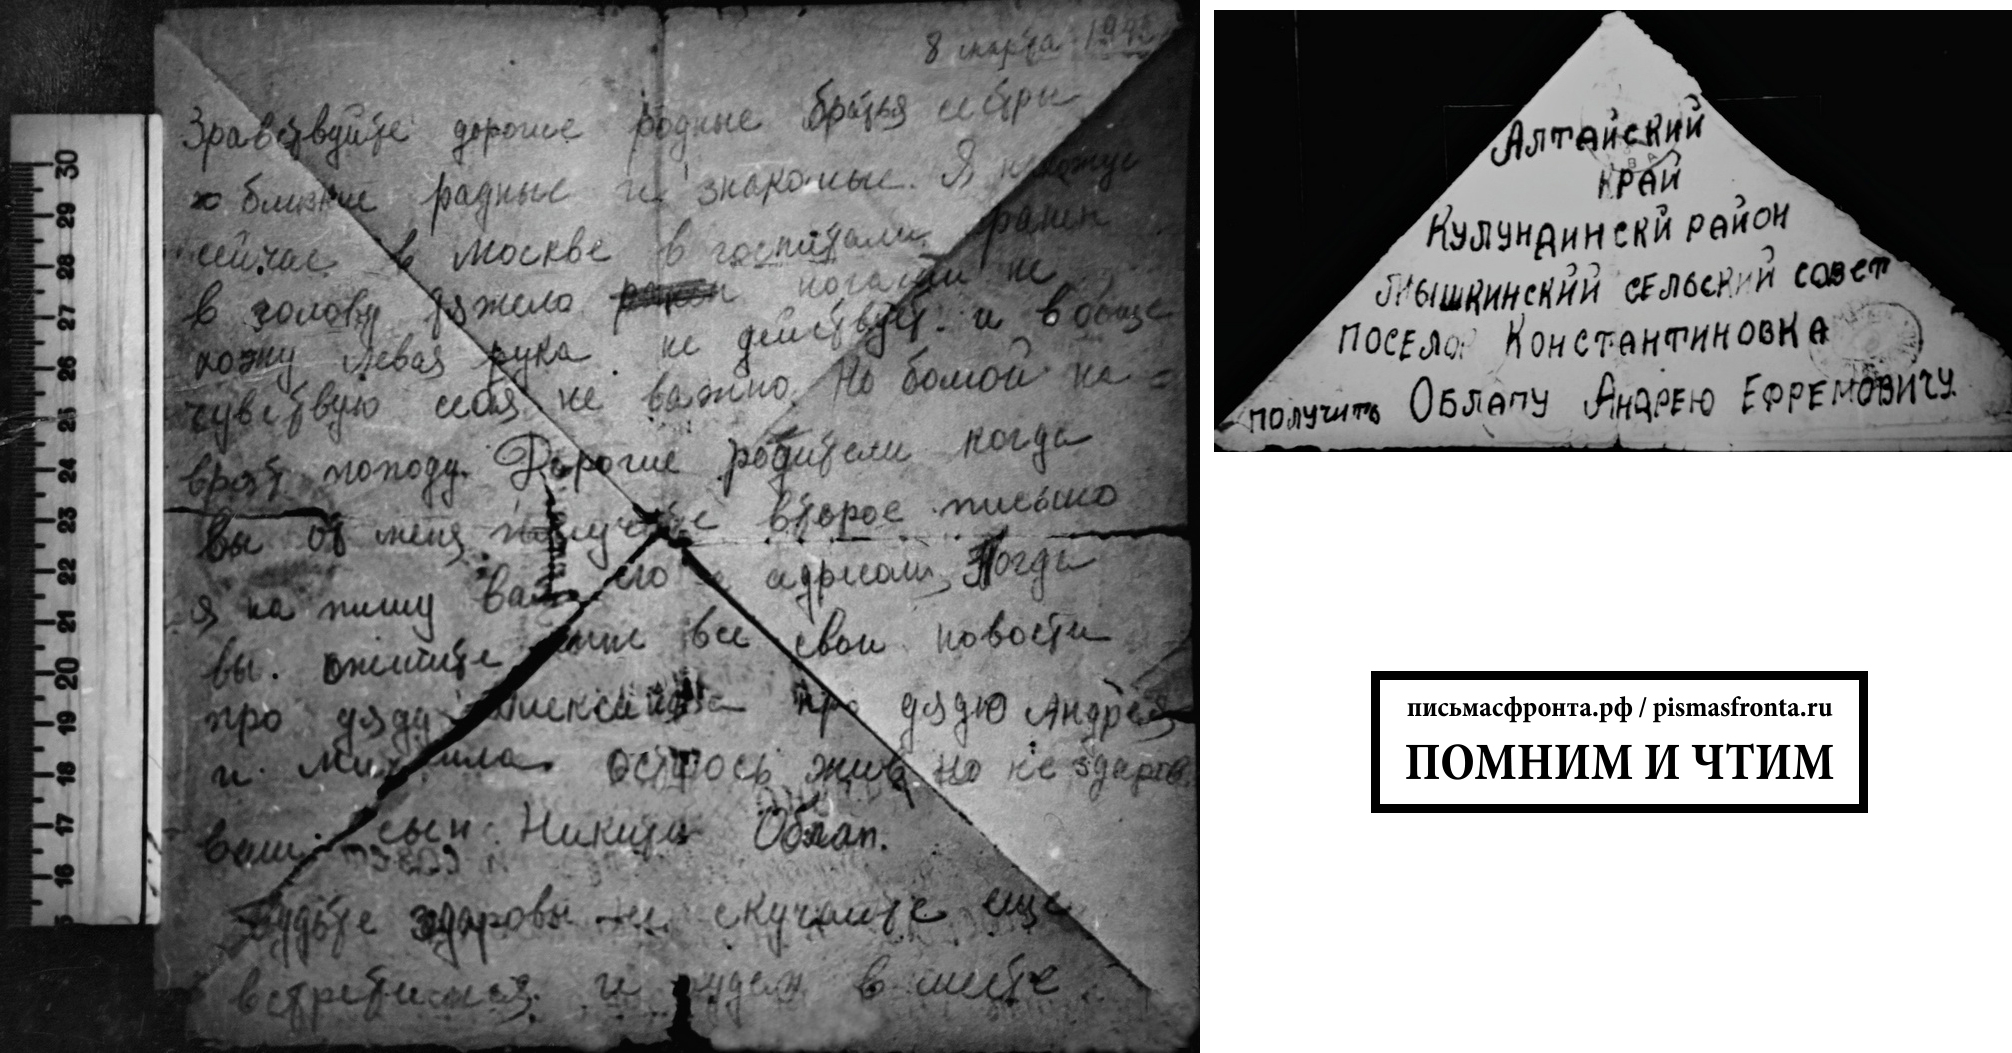 8 марта 194
Зравствуйте дорогие родные братья сестры
ближние радные и знакомые. Я нахожус
сейчас в Москве в госпитали ранен
в голову тяжело ногами не
хожу левая рука не действует. и вобще
чувствую себя не важно. Но бомой на
врят попаду. Дорогие родители когда
вы от меня получите второе письмо
я на пишу вам его с адресом. Тогда
вы. пишите мне все свои новости
про дяду Александра про дядю Андрея
и. Михаила. остаюсь жив но не здаров
ваш сын Никита Облап.
Будьте здаровы не скучайте еще
встретимся и будем в месте
30
29
28
27
26
25
24
23
22
21
20
19
18
17
16
Алтайский
край
Кулундински район
Мышкинский сельский совет
поселок Константиновка
получить Облапу Андрею Ефремовичу
письмасфронта.рф / pismasfronta.ru
ПОМНИМ И ЧТИМ